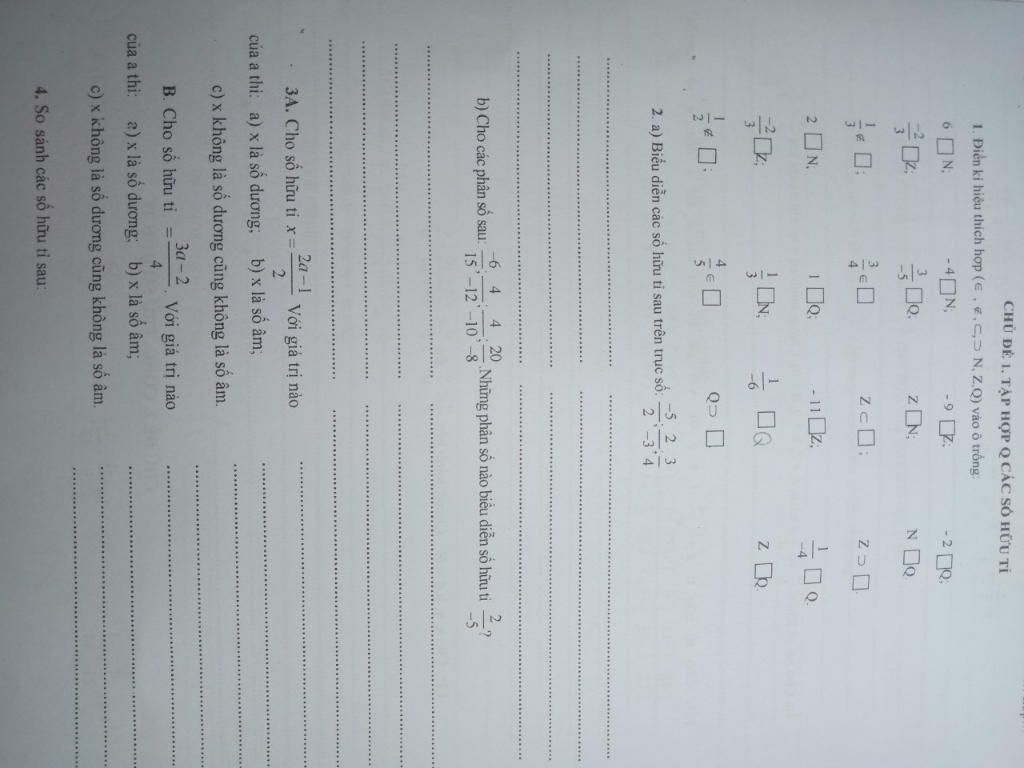 CHỦ ĐỀ 1. TẬP HỢP Q CÁC SỐ HỮU TỈ
1. Điền kí hiệu thích hợp (∈ , ∉ , ⊂, ⊃ N, Z,Q) vào ô trống:
6 □ N; - 4 □ N; - 9 □ Z; - 2 □ Q;
-2/3 □ Z; 3/-5 □ Q; Z □ N; N □ Q
1/3 ∉ □ ; 3/4 ∈ □ Z ⊂ □ ; Z ⊃ □.
2 □ N; 1 □ Q; - 11 □ Z; 1/-4 □ Q.
-2/3 □ Z; 1/3 □ N; 1/-6 □ Q Z □ Q.
1/2 ∉ □ ; 4/5 ∈ □ Q ⊃ □
2. a) Biểu diễn các số hữu tỉ sau trên trục số: -5/2; 2/-3; 3/4
b) Cho các phân số sau: -6/15; 4/-12; 4/-10; 20/-8. Những phân số nào biểu diễn số hữu tỉ 2/-5?
3A. Cho số hữu tỉ x = 2a-1/2 Với giá trị nào
của a thì: a) x là số dương; b) x là số âm;
c) x không là số dương cũng không là số âm.
B. Cho số hữu tỉ = 3a-2/4. Với giá trị nào
của a thì: a) x là số dương; b) x là số âm;
c) x không là số dương cũng không là số âm.
4. So sánh các số hữu tỉ sau: